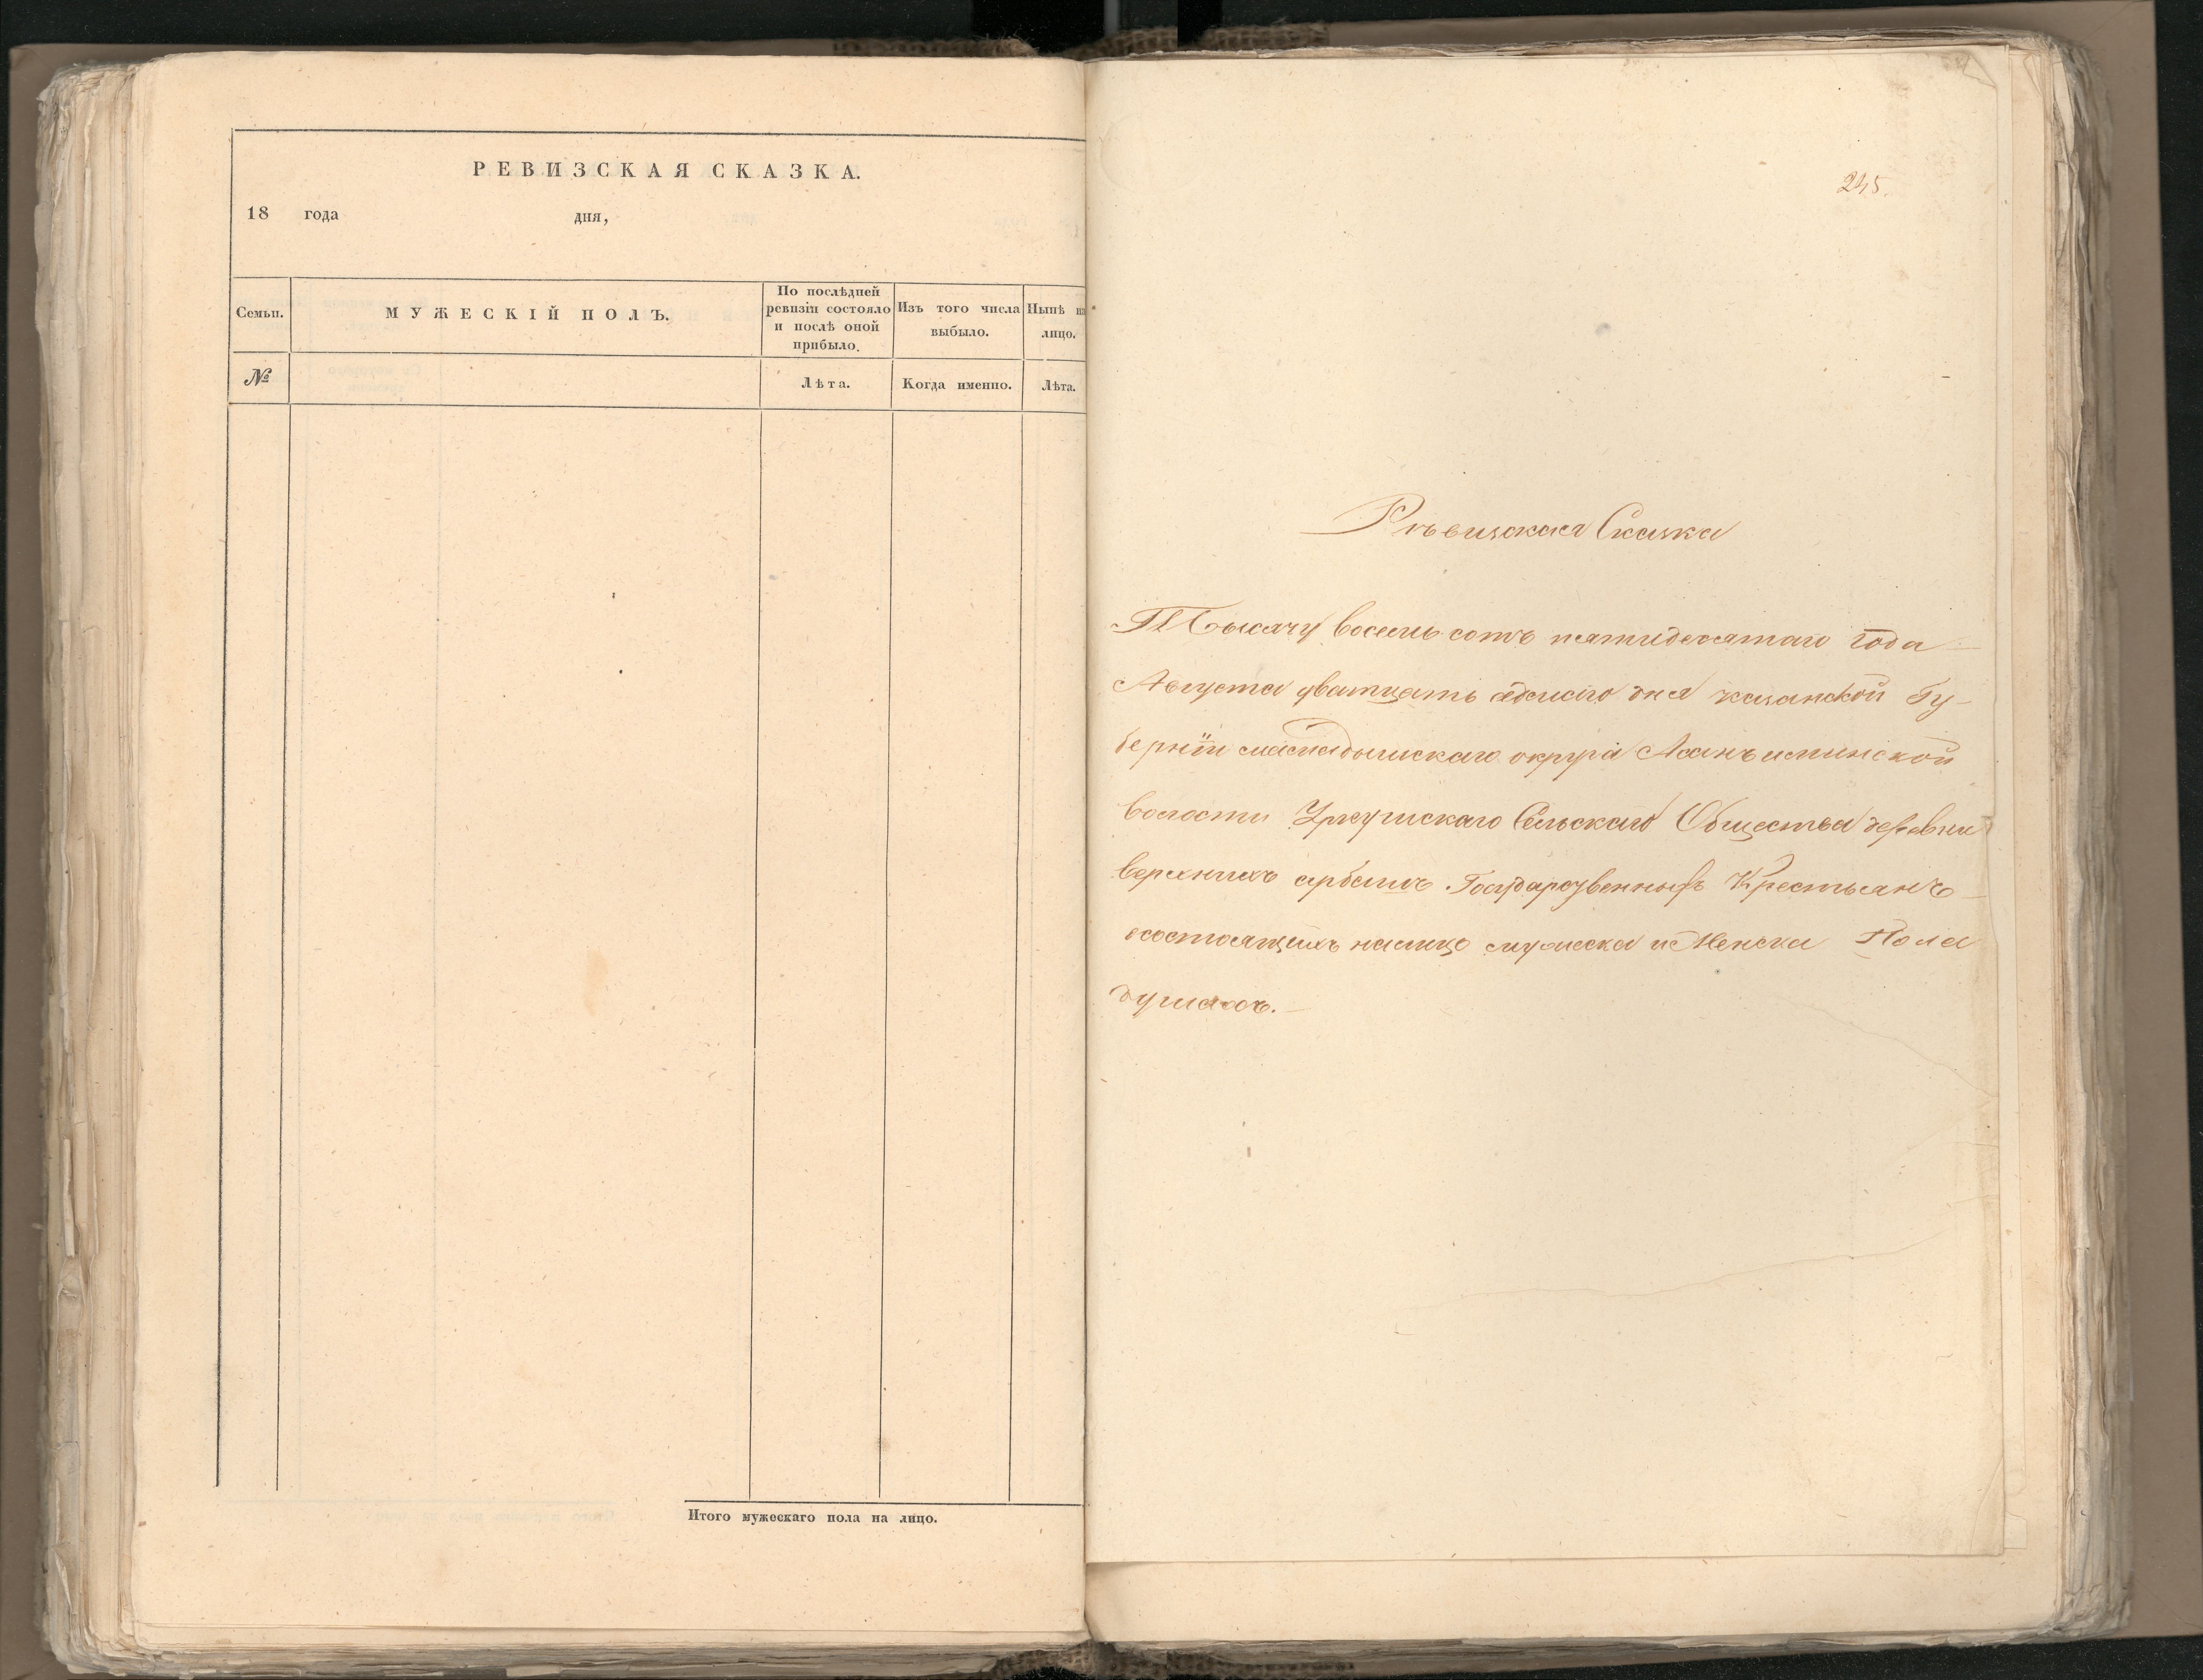 РЕВИЗСКАЯ СКАЗКА.
18 года дня,
Семьи.
МУЖЕСКІЙ ПОЛЪ.
По послѣдней
ревизіи состояло
и послѣ оной
прибыло.
Изъ того числа
выбыло.
Нынѣ на
лицо.
№
Лѣта.
Когда именно.
Лѣта.
Итого мужескаго пола на лицо.
245.
Ревизская Сказка
Тысячу восемь сотъ пятидесятаго года
Августа дватцать дня казанской Гу-
берніи мамадышскаго округа
волости Сельскаго Общества деревни
верхнихъ Государственныхъ Крестьянъ
состоящихъ налицо мужеска и Женска Пола
душахъ.